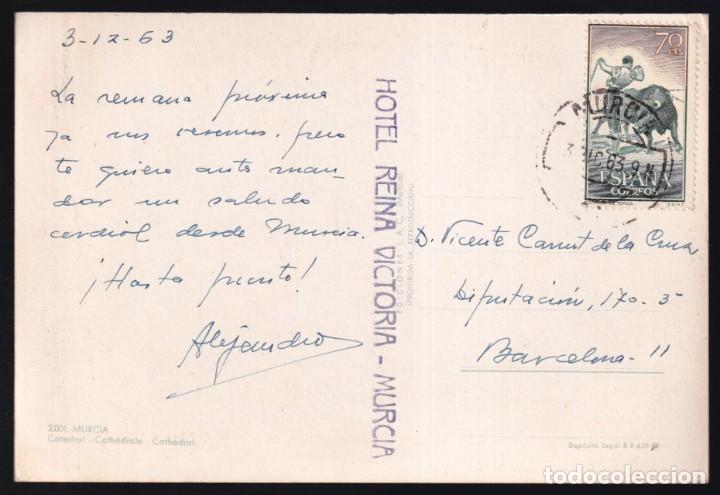 3-12-63
La semana próxima
ya nos veremos, pero
te quiero antes man-
dar un saludo
cordial desde Murcia.
¡Hasta pronto!
Alejandro
2.001.-MURCIA
Catedral - Cathédrale - Cathedral.
HOTEL REINA VICTORIA - MURCIA
EDICIONES
PROHIBIDA LA REPRODUCCION
70 CTS
MURCIA
ESPAÑA
CORREOS
D. Vicente de la Cruz
Diputación, 170-5
Barcelona-11
Depósito Legal B
todocoleccion.net